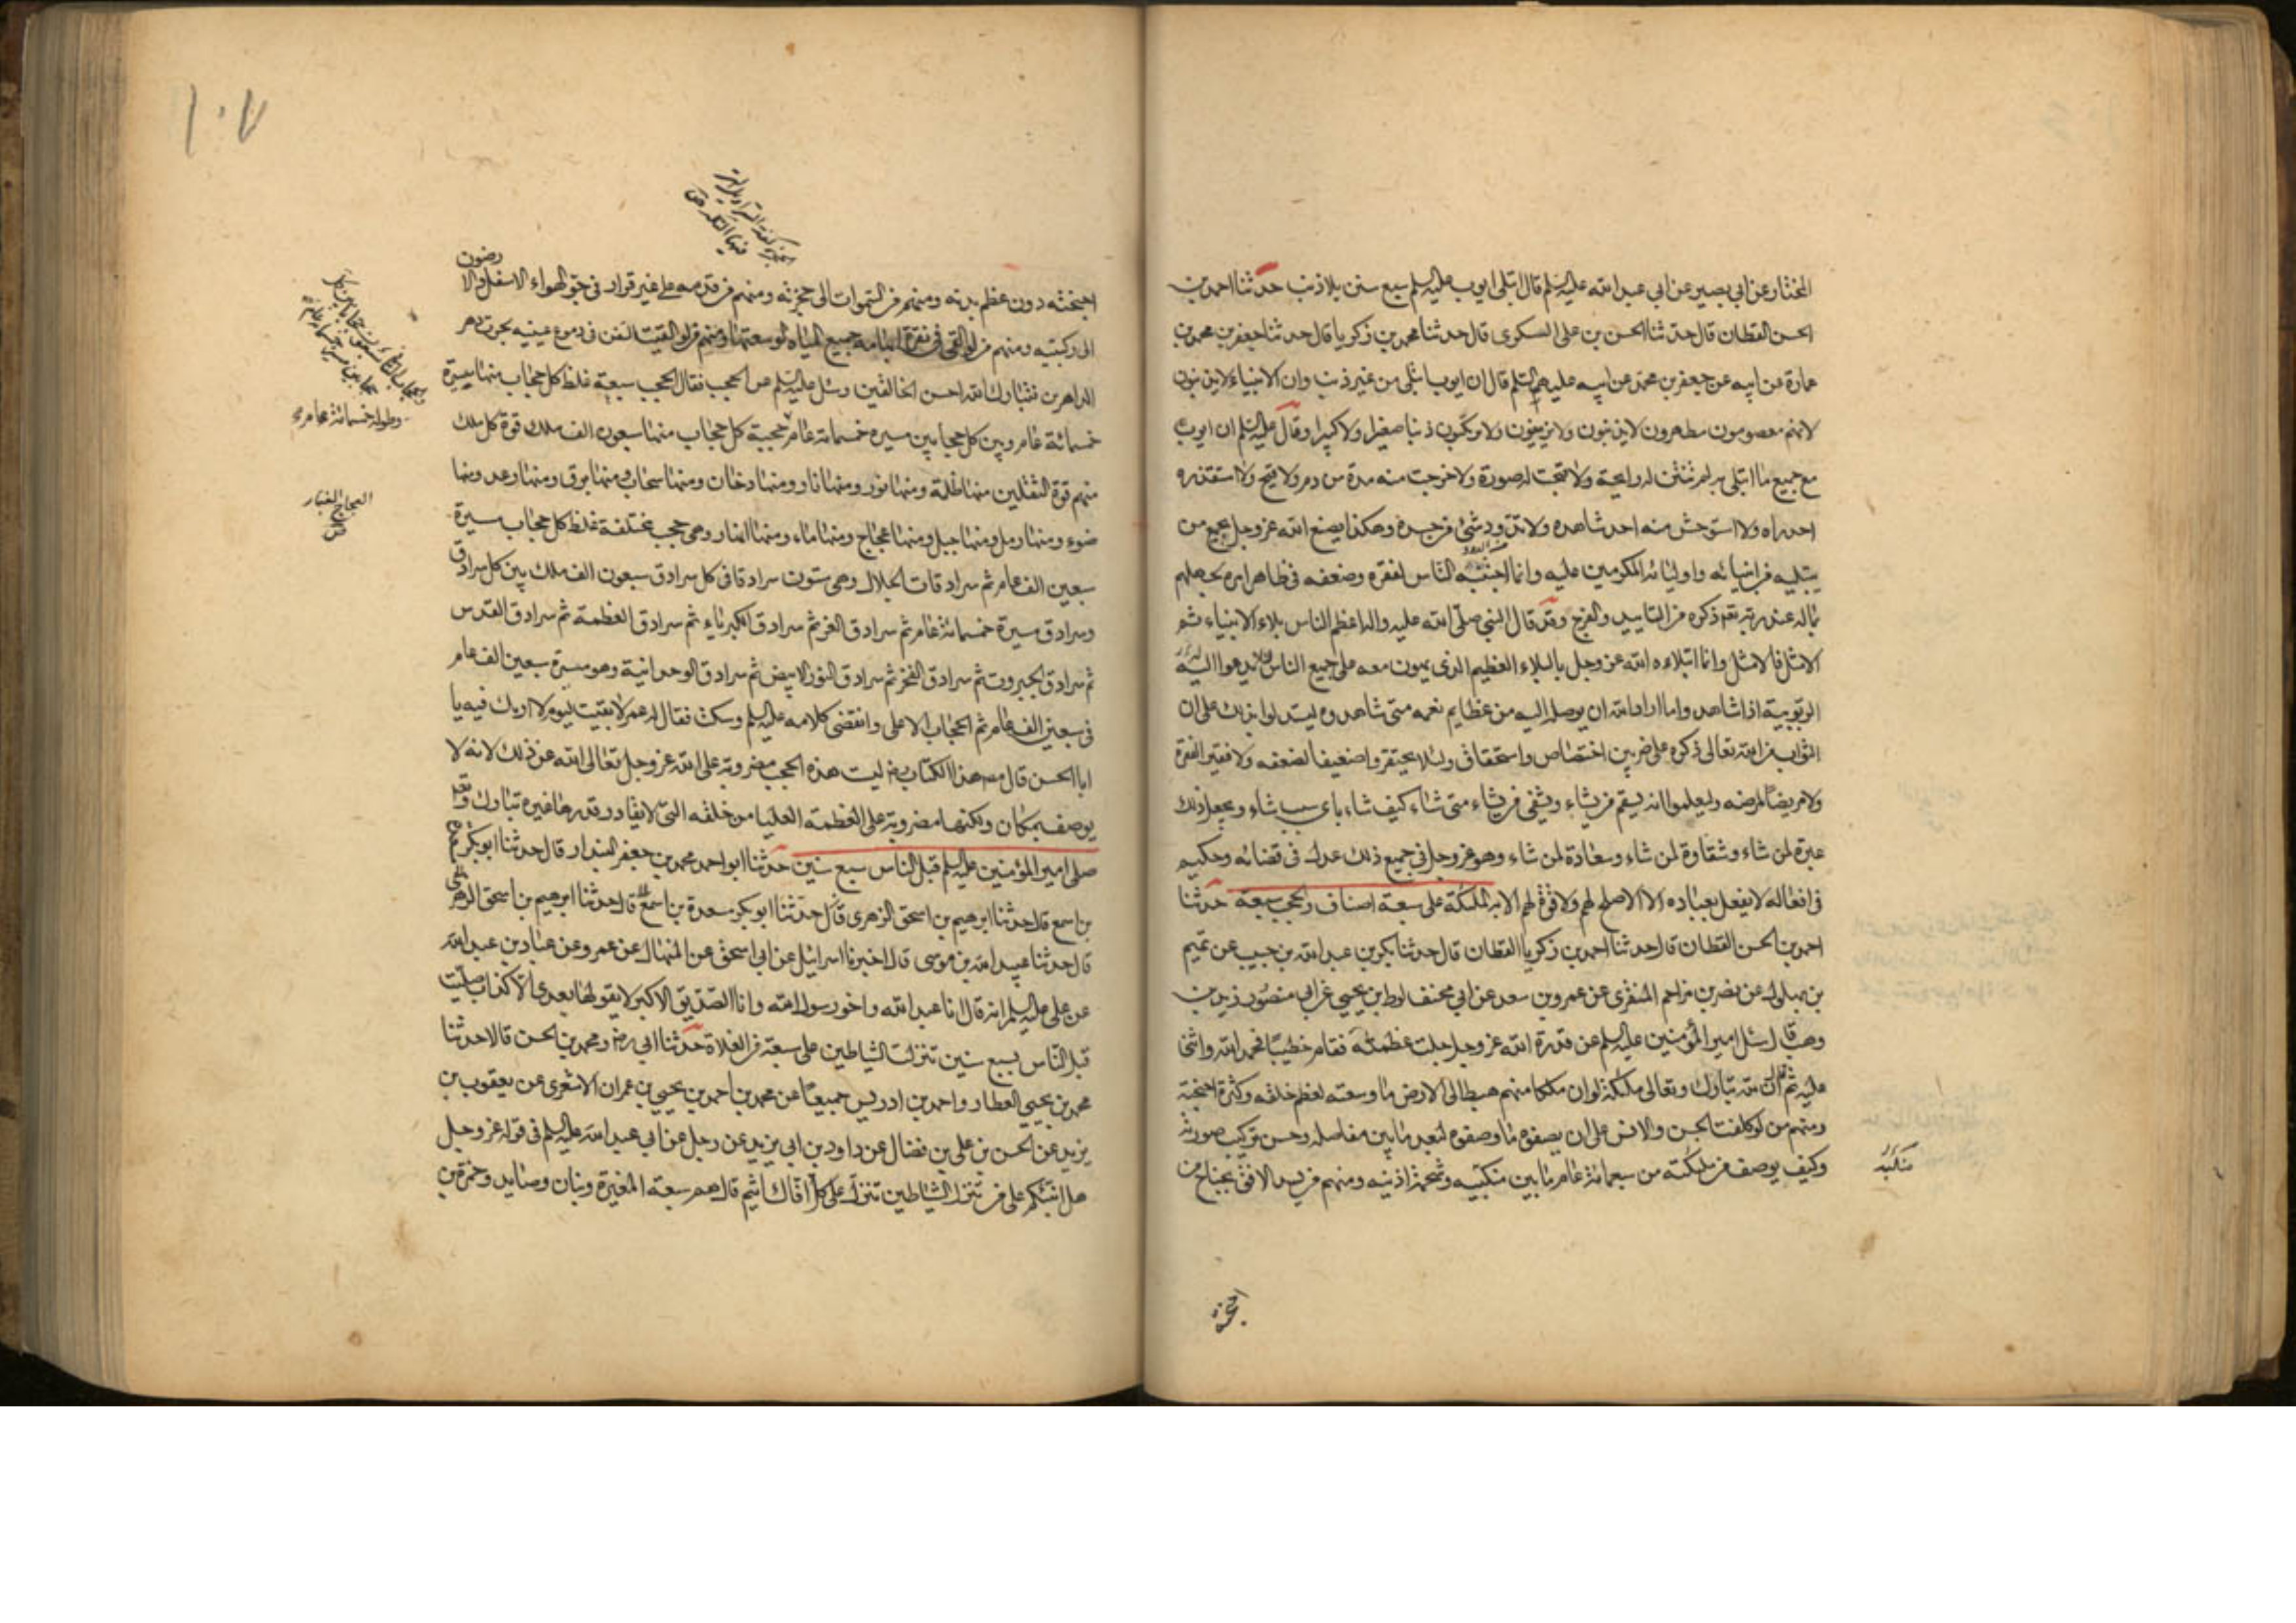 المختار عن ابي بصير عن ابي عبد الله عليه السلم قال ابتلى ايوب عليه السلم سبع سنين بلا ذنب حدثنا احمد بن
الحسن القطان قال حدثنا الحسن بن علي السكري قال حدثنا محمد بن زكريا قال حدثنا جعفر بن محمد بن
عمارة عن ابيه عن جعفر بن محمد عن ابيه عليهم السلم قال ان ايوب ابتلى من غير ذنب وان الانبياء لا يذنبون
لانهم معصومون مطهرون لا يذنبون ولا يزيغون ولا يرتكبون ذنبا صغيرا ولا كبيرا وقال عليه السلم ان ايوب
مع جميع ما ابتلى به لم تنتن له رايحة ولا قبحت له صورة ولا خرجت منه مدة من دم ولا قيح ولا استقذره
احد راه ولا استوحش منه احد شاهده ولا تدود شئ من جسده وهكذا يصنع الله عز وجل بجميع من
يبتليه من انبيائه واوليائه المكرمين عليه وانما اجتنبه الناس لفقره وضعفه في ظاهر امره بجهلهم
بما له عند ربه تعالى ذكره من التاييد والفرج وقد قال النبي صلى الله عليه واله اعظم الناس بلاء الانبياء ثم
الامثل فالامثل وانما ابتلاه الله عز وجل بالبلاء العظيم الذي يهون معه على جميع الناس لئلا يدعوا له
الربوبية اذا شاهدوا ما اراد الله ان يوصله اليه من عظايم نعمه متى شاهدوه ليستدلوا بذلك على ان
الثواب من الله تعالى ذكره على ضربين اختصاص واستحقاق ولئلا يحتقروا ضعيفا لضعفه ولا فقيرا لفقره
ولا مريضا لمرضه وليعلموا انه يسقم من يشاء ويشفي من يشاء متى شاء كيف شاء باي سبب شاء ويجعل ذلك
عبرة لمن شاء وشقاوة لمن شاء وسعادة لمن شاء وهو عز وجل في جميع ذلك عدل في قضائه وحكيم
في افعاله لا يفعل بعباده الا الاصلح لهم ولا قوة لهم الا به الملئكة على سبعة اصناف والحجب سبعة حدثنا
احمد بن الحسن القطان قال حدثنا احمد بن زكريا القطان قال حدثنا بكر بن عبد الله بن حبيب عن تميم
بن بهلول عن نصر بن مزاحم المنقري عن عمرو بن سعد عن ابي مخنف لوط بن يحيى عن ابي منصور زيد بن
وهب قال سئل امير المؤمنين عليه السلم عن قدرة الله عز وجل جلت عظمته فقام خطيبا فحمد الله واثنى
عليه ثم قال ان لله تبارك وتعالى ملئكة لو ان ملكا منهم هبط الى الارض ما وسعته لعظم خلقه وكثرة اجنحته
ومنهم من لو كلفت الجن والانس على ان يصفوه ما وصفوه لبعد ما بين مفاصله وحسن تركيب صورته
وكيف يوصف من ملئكته من سبعمائة عام ما بين منكبيه وشحمة اذنيه ومنهم من يسد الافق بجناح من
منكبيه
اجنحته
١٠٧
اجنحته دون عظم بدنه ومنهم من السموات الى حجزته ومنهم من قدمه على غير قرار في جو الهواء الاسفل والا
رضون
الى ركبتيه ومنهم من لو القي في نقرة ابهامه جميع المياه لوسعتها ومنهم من لو القيت السفن في دموع عينيه لجرت دهر
الداهرين فتبارك الله احسن الخالقين وسئل عليه السلم عن الحجب فقال الحجب سبعة غلظ كل حجاب منها مسيرة
خمسمائة عام وبين كل حجابين مسيرة خمسمائة عام حجبة كل حجاب منها سبعون الف ملك قوة كل ملك
منهم قوة الثقلين منها ظلمة ومنها نور ومنها نار ومنها دخان ومنها سحاب ومنها برق ومنها رعد ومنها
ضوء ومنها رمل ومنها جبل ومنها عجاج ومنها ماء ومنها انهار وهي حجب مختلفة غلظ كل حجاب مسيرة
سبعين الف عام ثم سرادقات الجلال وهي ستون سرادقا في كل سرادق سبعون الف ملك بين كل سرادق
وسرادق مسيرة خمسمائة عام ثم سرادق العز ثم سرادق الكبرياء ثم سرادق العظمة ثم سرادق القدس
ثم سرادق الجبروت ثم سرادق الفخر ثم سرادق النور الابيض ثم سرادق الوحدانية وهو مسيرة سبعين الف عام
في سبعين الف عام ثم الحجاب الاعلى وانقضى كلامه عليه السلم وسكت فقال له عمر لا بقيت ليوم لا اراك فيه يا
ابا الحسن قال مصنف هذا الكتاب رض ليست هذه الحجب مضروبة على الله عز وجل تعالى الله عن ذلك لانه لا
يوصف بمكان ولكنها مضروبة على العظمة العليا من خلقه التي لا يقادر قدرها غيره تبارك وتعالى
صلى امير المؤمنين عليه السلم قبل الناس سبع سنين حدثنا ابو احمد محمد بن جعفر البندار قال حدثنا ابو بكر
بن اسمع قال حدثنا ابرهيم بن اسحق الزهري قال حدثنا ابو بكر مسعدة بن اسمع قال حدثنا ابرهيم بن اسحق الزهري
قال حدثنا عبيد الله بن موسى قال اخبرنا اسرائيل عن ابي اسحق عن المنهال عن عمرو عن عباد بن عبد الله
عن علي عليه السلم انه قال انا عبد الله واخو رسول الله وانا الصديق الاكبر لا يقولها بعدي الا كذاب صليت
قبل الناس بسبع سنين تنزلت الشياطين على سبعة من الغلاة حدثنا ابي رض ومحمد بن الحسن قالا حدثنا
محمد بن يحيى العطار واحمد بن ادريس جميعا عن محمد بن احمد بن يحيى بن عمران الاشعري عن يعقوب بن
يزيد عن الحسن بن علي بن فضال عن داود بن ابي يزيد عن رجل عن ابي عبد الله عليه السلم في قوله عز وجل
هل انبئكم على من تنزل الشياطين تنزل على كل افاك اثيم قال هم سبعة المغيرة وبنان وصايد وحمزة بن
وطوله خمسمائة عام
العجاج الغبار